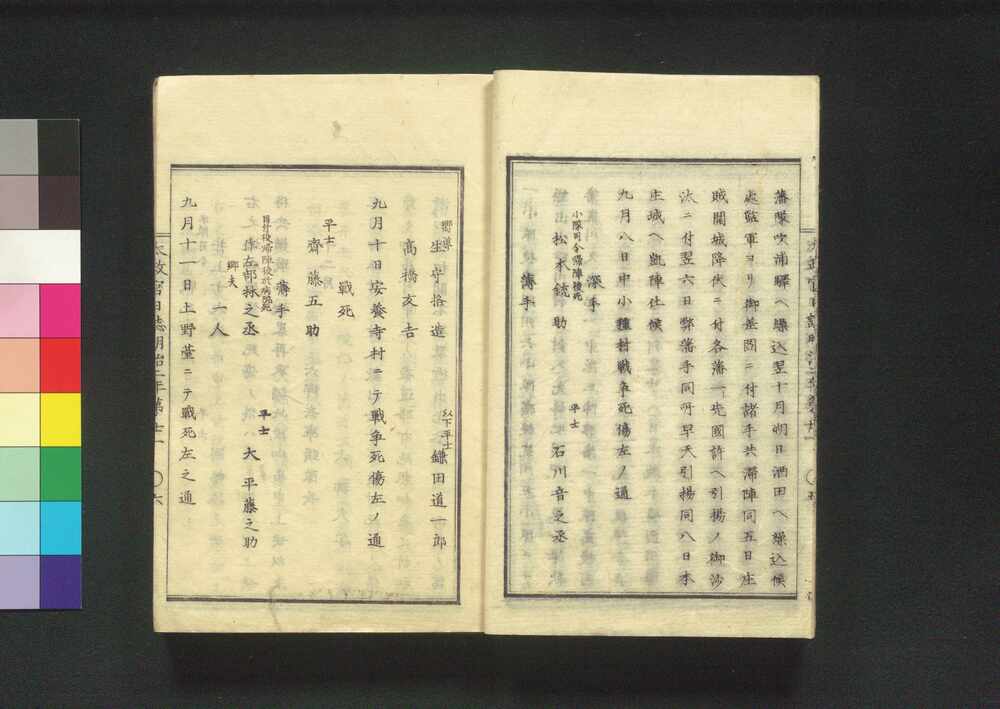 藩隊吹浦驛ヘ繰込翌十月朔日酒田ヘ繰込候
處監軍ヨリ御差圖ニ付諸手共滞陣同五日庄
賊開城降伏ニ付各藩一ト先國許ヘ引揚ノ御沙
汰ニ付翌六日弊藩手同所早天引揚同八日本
庄城ヘ凱陣仕候
九月八日中小種村戰争死傷左ノ通
深手
小隊司令歸陣後死 松本銃助 平士 石川音之丞
薄手
嚮導 生守恪造 以下平士 鎌田道一郎
高橋亥吉
九月十日安養寺村ニテ戰争死傷左ノ通
戰死
平士 齋藤五助
薄手
目付役歸陣後致病死 佐左部林之丞 平士 大平藤之助
郷夫 一人
九月十一日上野臺ニテ戰死左之通
太政官日誌明治二年第廿一 〇六